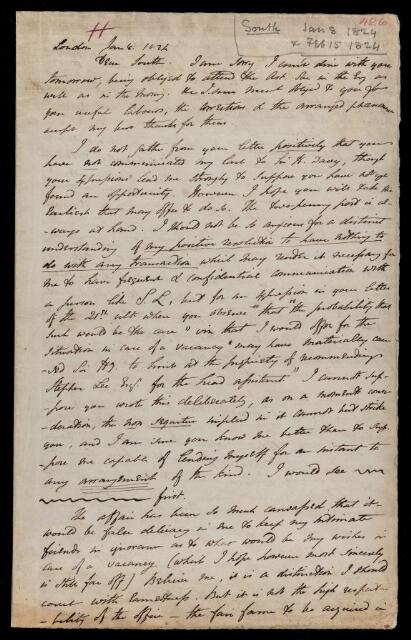 486
South Jan 8 1824
& Feb 15 1824
London Jan 8. 1824
Dear South. I am sorry I can't dine with you
tomorrow, being obliged to attend the Ast. Soc in the Evg as
well as in the morng. We I am much obliged to you for
your useful labours, the corrections of the arranged
accept my best thanks for them.
I do not gather from your letter positively that you
have not communicated my last to Sir H. Davy, though
your expressions lead me strongly to suppose you have not yet
found an opportunity. However I hope you will take the
Earliest that may offer to do so. The twopenny post is al-
-ways at hand. I should not be so anxious for a distinct
understanding of my positive resolution to have nothing to
do with any transaction which may render it necessary for
me to have frequent & confidential communication with
a person like S. L, but for an expression in your letter
of the 21st ult where you observe "that "the probability that
such would be the case" viz that I would offer for the
situation in case of a vacancy "may have materially cau-
-sed Sir H.y. to hint at the propriety of recommending
Stephen Lee Esq. for the head assistant" I cannot sup-
pose you wrote this deliberately, as on a moment's consi-
-deration, the non sequitur implied in it cannot but strike
you, and I am sure you know me better than to sup-
-pose me capable of lending myself for an instant to
any arrangement of the kind. I would see
first.
The affair has been so much canvassed, that it
would be false delicacy in me to keep my intimate
friends in ignorance as to what would be my wishes in
case of a vacancy (which I hope however most sincerely
is still far off) Believe me, it is a distinction I should
court with Earnestness. But it is not the high respect-
-ability of the office - the fair fame to be acquired in